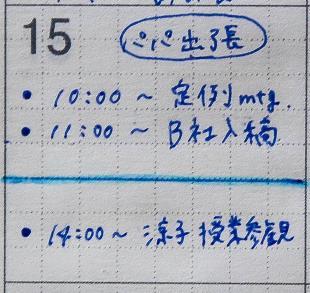 15 パパ出張
• 10:00 ~ 定例mtg.
• 11:00 ~ B社入稿
• 14:00 ~ 涼子 授業参観